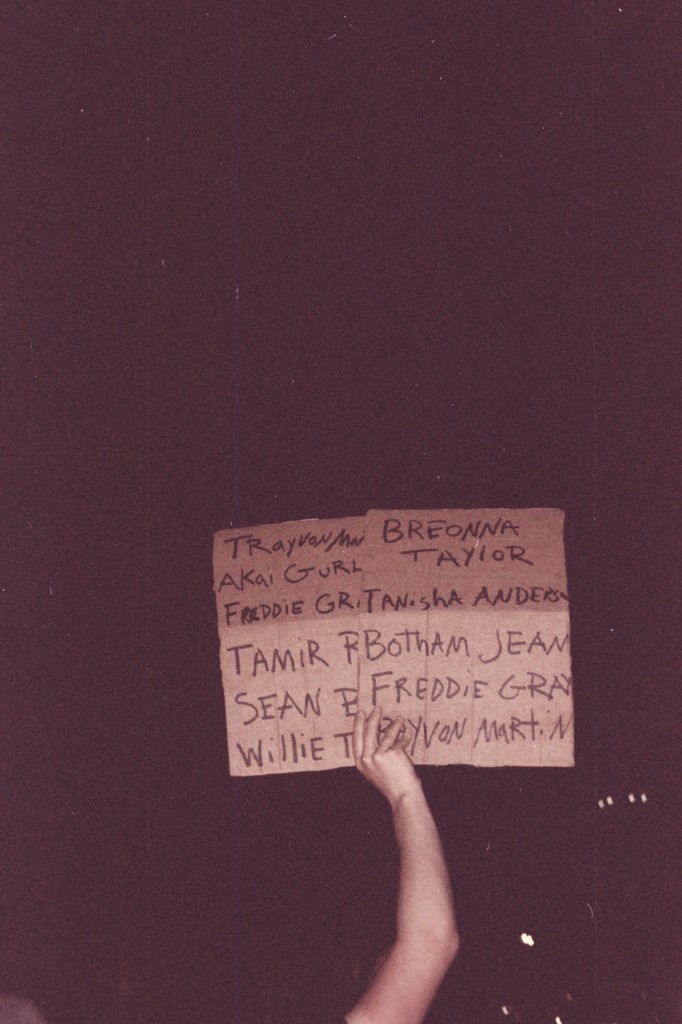 TRayvon
AKai GURL
FREDDIE GR
TAMIR R
SEAN B
WilliE T
BREONNA
TAYlOR
TANishA ANDERS
BOThAM JEAN
FREDDiE GRAY
RAYVON MARtiN